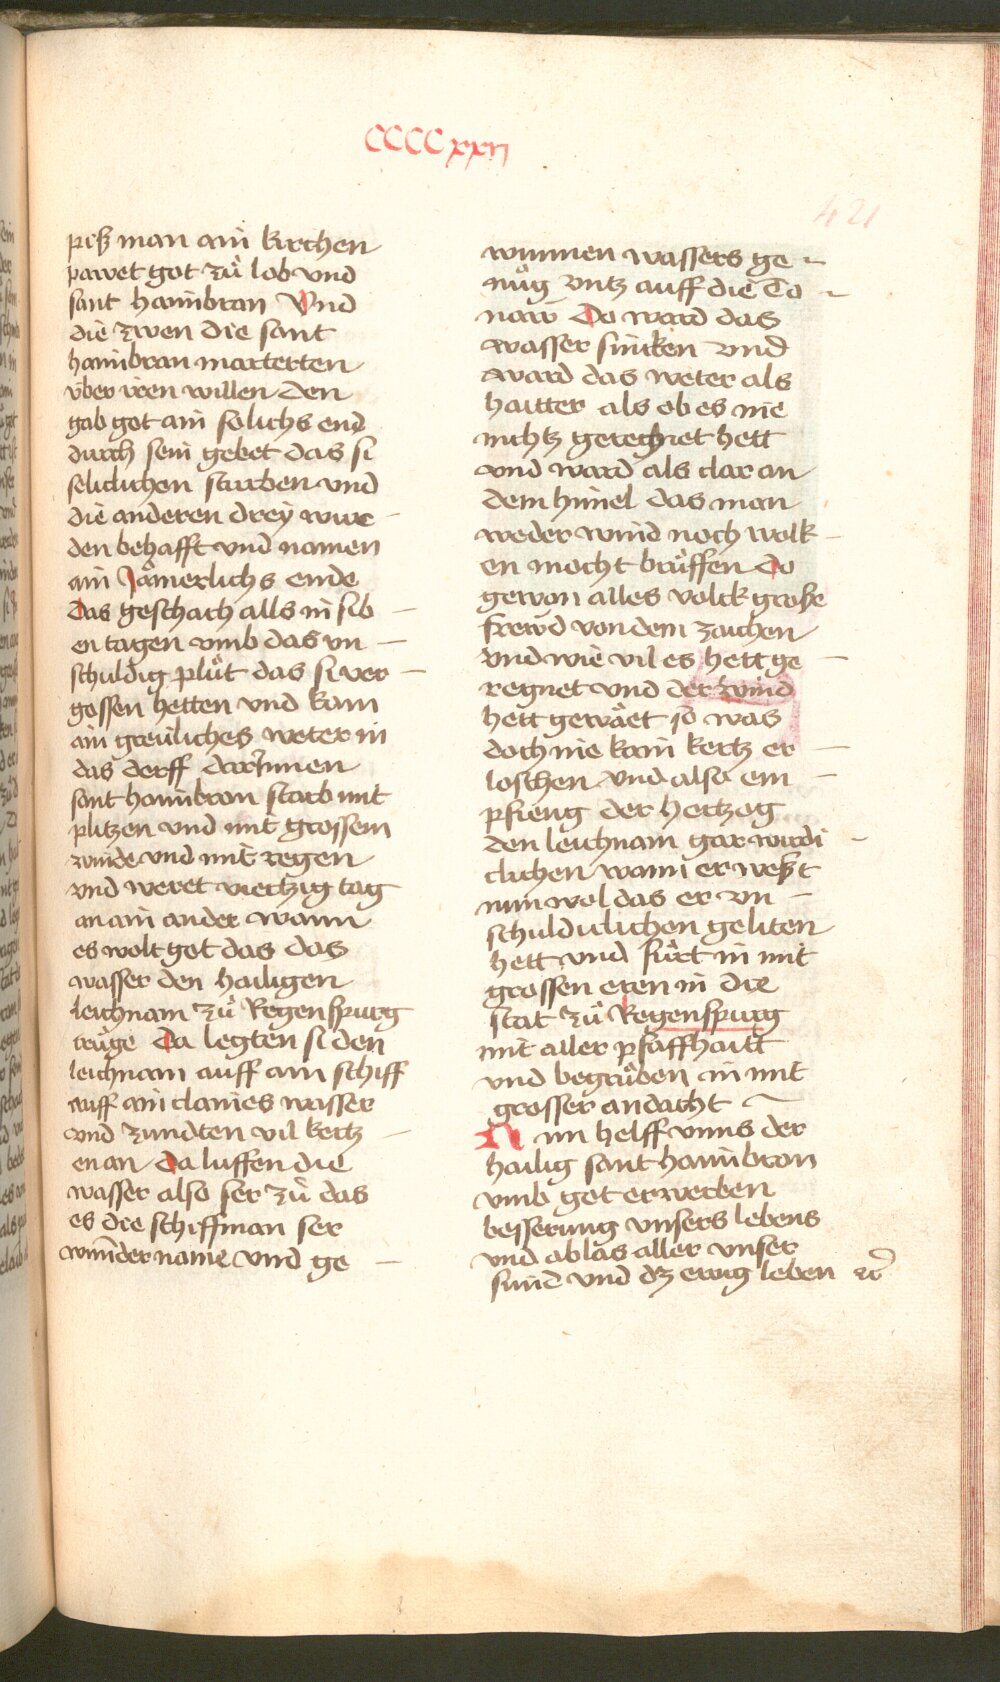 CCCCxxij
421
priß man ain kirchen
pawet got zů lob vnd
sant haimbran Vnd
die zwen die sant
haimbran marterten
über iren willen den
gab got ain solichs end
durch sein gebet das si
seliclichen sturben vnd
die anderen drey wur -
den behafft vnd namen
ain Jämerlichs ende
Das geschach alls in sib -
en tagen vmb das vn -
schuldig plůt das si ver -
gossen hetten vnd kam
ain greüliches weter in
das derff darinnen
sant haimbran starb mit
plitzen vnd mit grossem
winde vnd mit regen
vnd weret viertzig tag
an ain ander wann
es wolt got das das
wasser den hailigen
leichnam zů Regenspurg
trüge Da legten si den
leichnam auff ain schiff
auff ain claines wasser
vnd zundten vil kertz -
en an Da luffen die
wasser also ser zů das
es die schiffman ser
wunder name vnd ge -
wunnen wassers ge -
nůg vntz auff die To -
naw Do ward das
wasser sincken vnd
ward das weter als
haitter als ob es nie
nichtz geregnet hett
vnd ward als clar an
dem himel das man
weder wind noch wolk -
en mocht brüffen Do
gewon alles volck große
frewd von dem zaichen
vnd wie vil es hett ge -
regnet vnd der wind
hett gewäet so was
doch nie kain kertz er -
loschen vnd also em -
pfieng der hertzog
den leichnam gar wirdi -
clichen wann er west
nun wol das er vn -
schuldiclichen geliten
hett vnd fürt in mit
grossen eren in die
stat zů Regenspurg
mit aller pfaffhaitt
vnd begrůben in mit
grosser andacht
Nun helff vnns der
hailig sant haimbran
vmb got erwerben
besserung vnsers lebens
vnd ablas aller vnser
sünd vnd dz ewig leben ꝛc